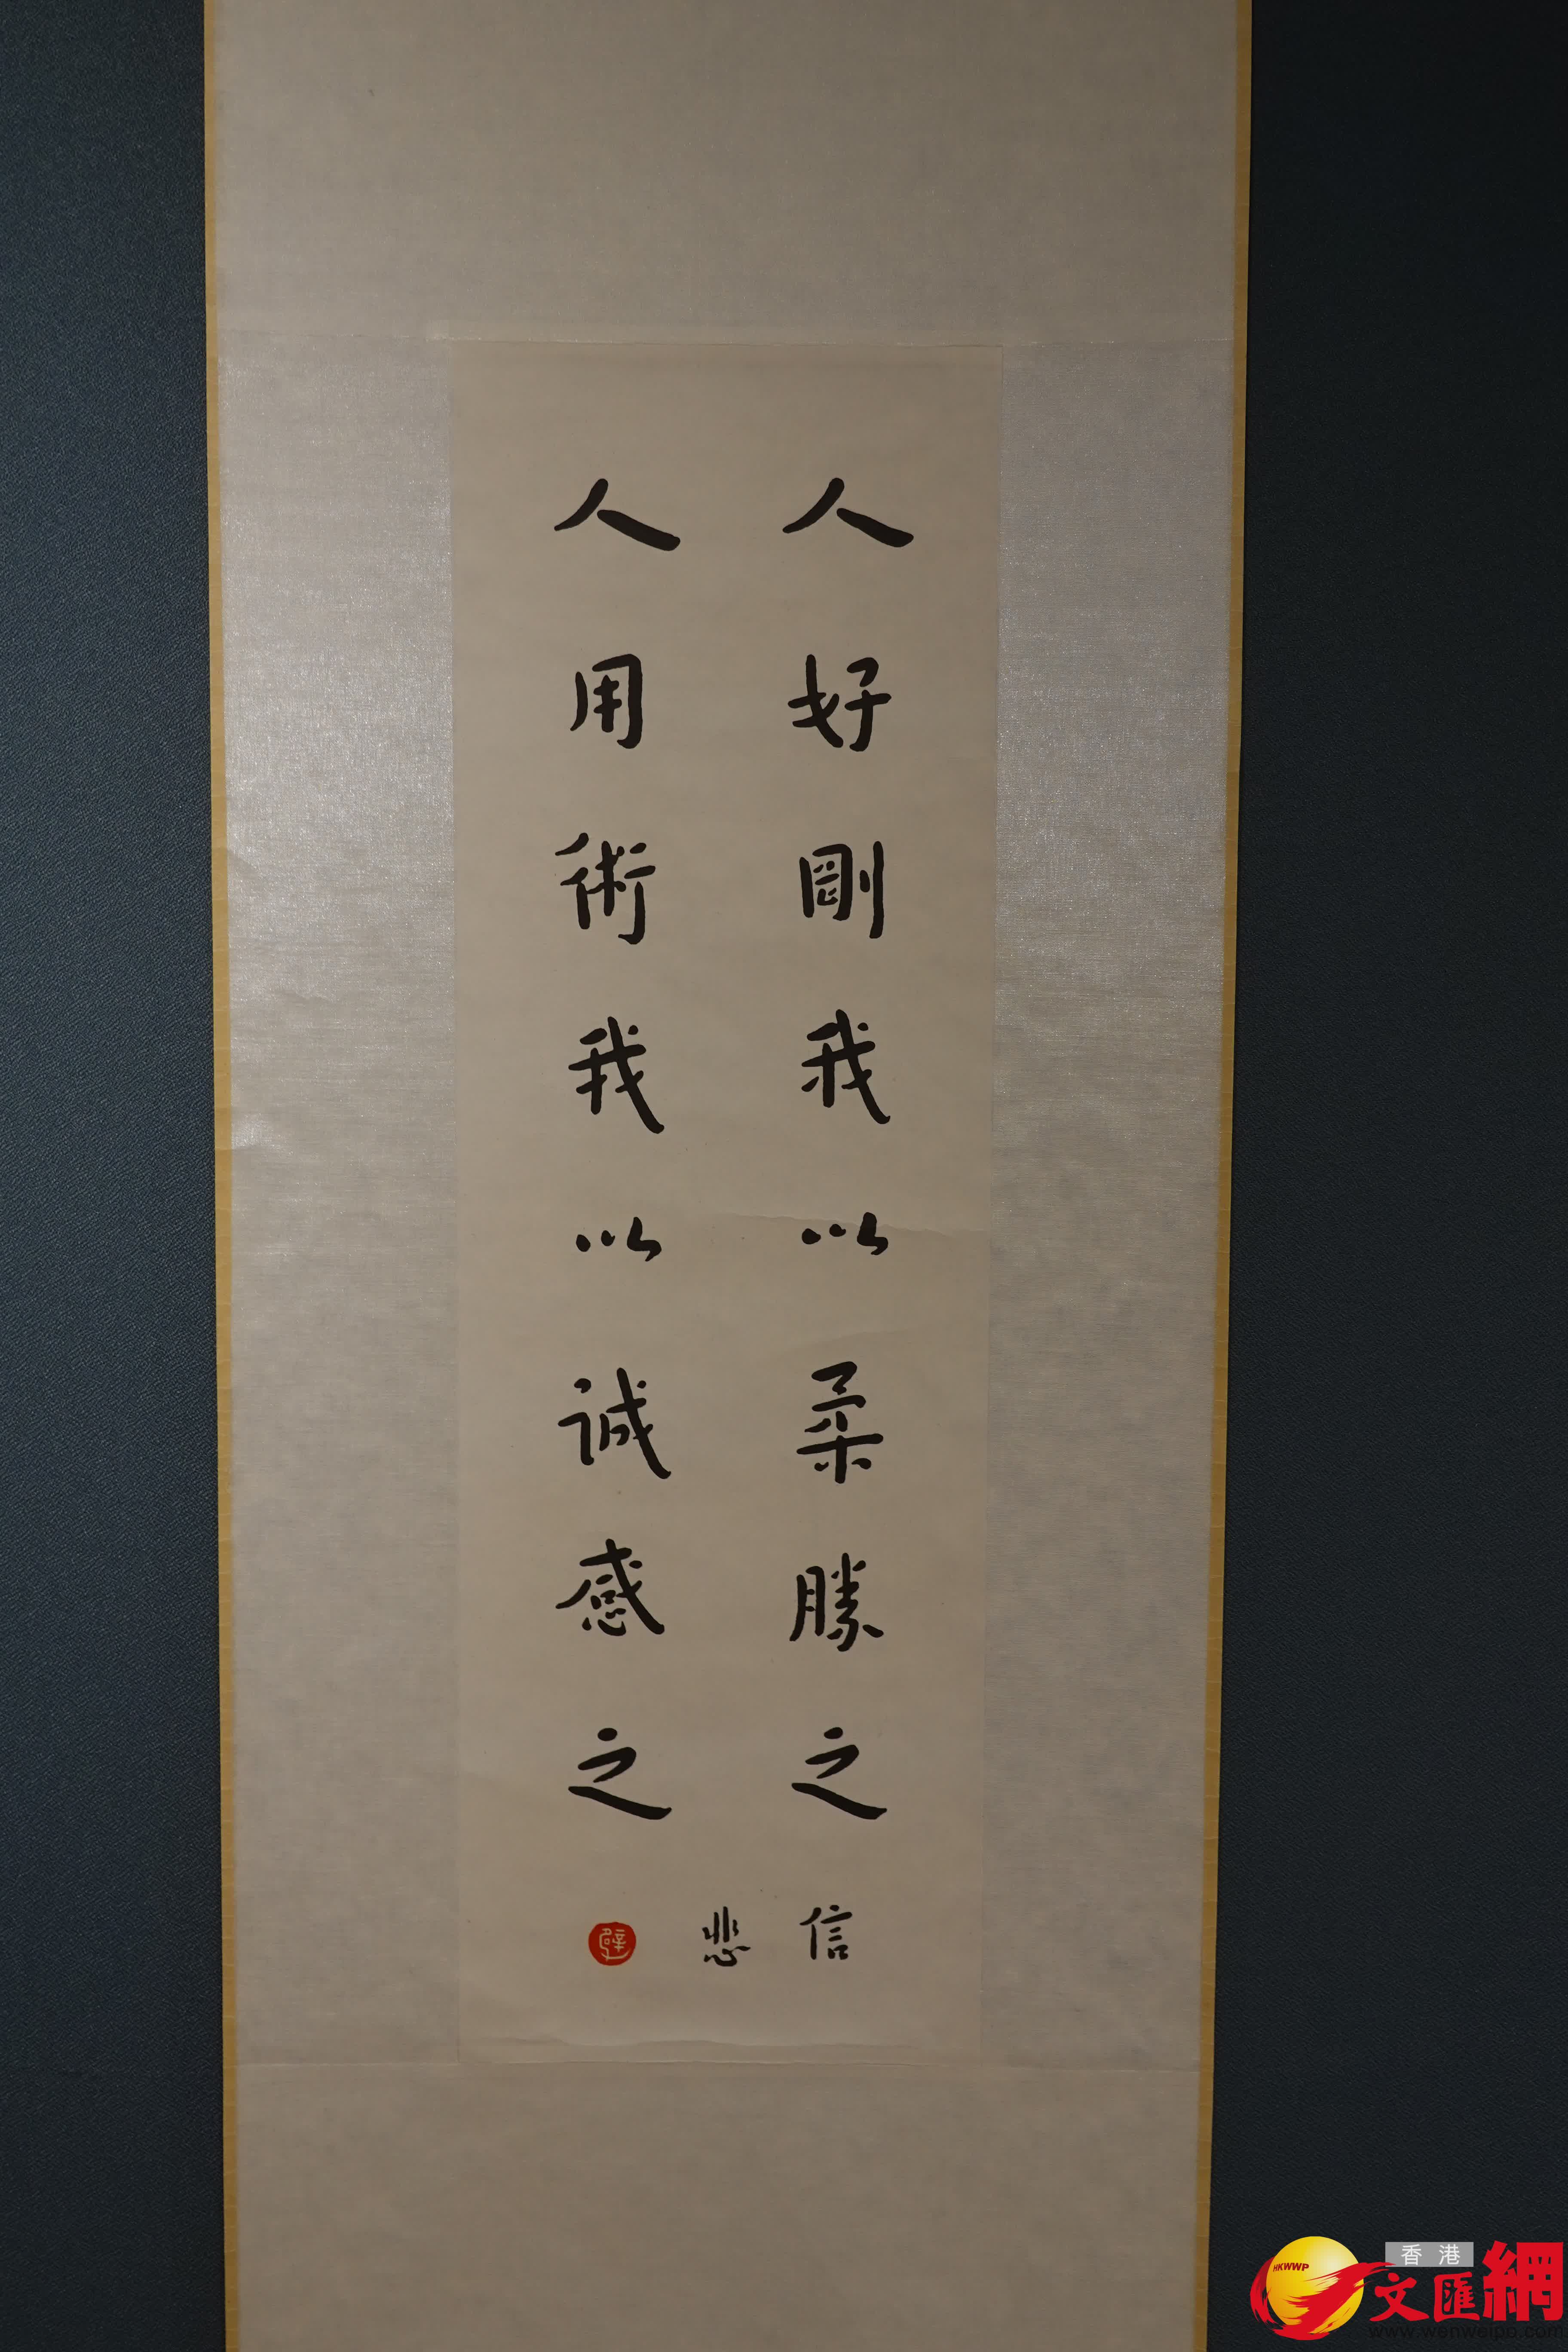 人好剛我以柔勝之
人用術我以誠感之
信悲
香港
文匯網
HKWWP
www.wenweipo.com